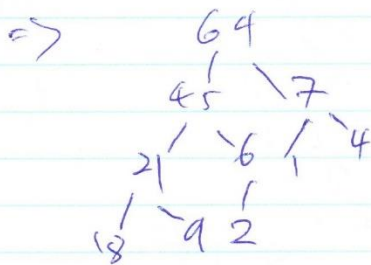 => 64
45 7
21 6 1 4
18 9 2